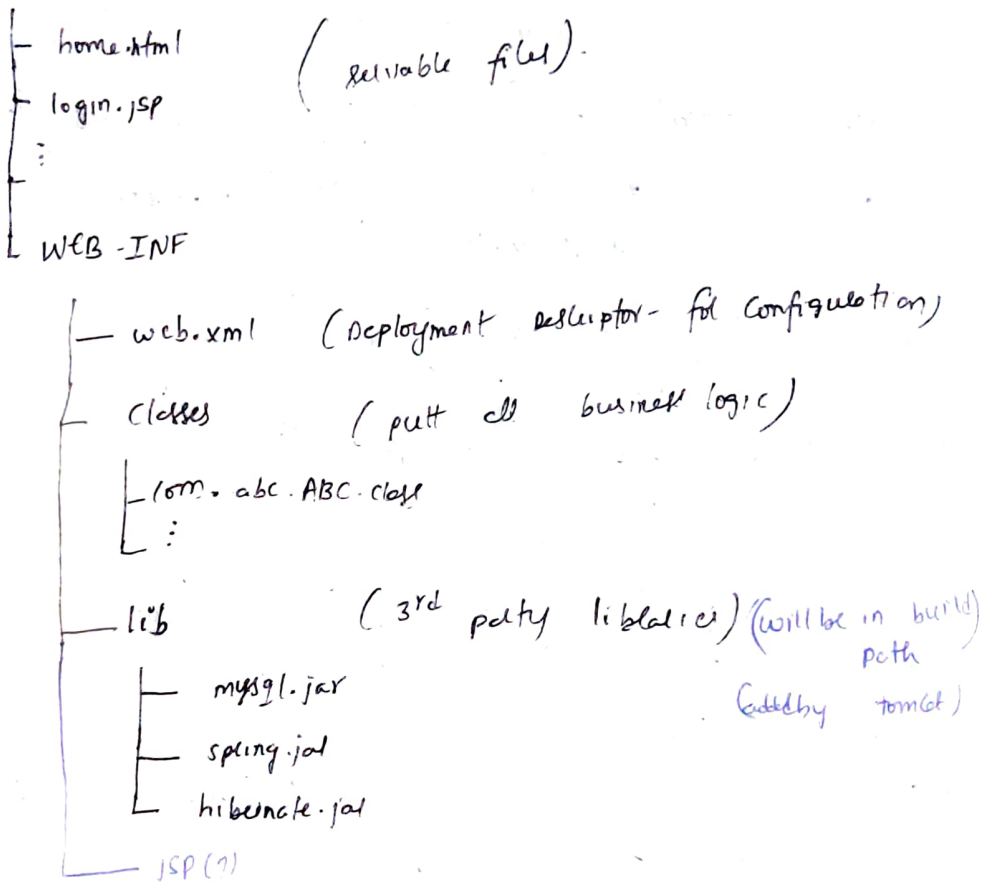 home.html (servable files).
login.jsp
⋮
WEB-INF
web.xml (Deployment Descriptor - for configuration)
classes (putt all business logic)
com.abc.ABC.class
⋮
lib (3rd party libraries) (will be in build path
(added by tomcat)
mysql.jar
spring.jar
hibernate.jar
JSP (?)